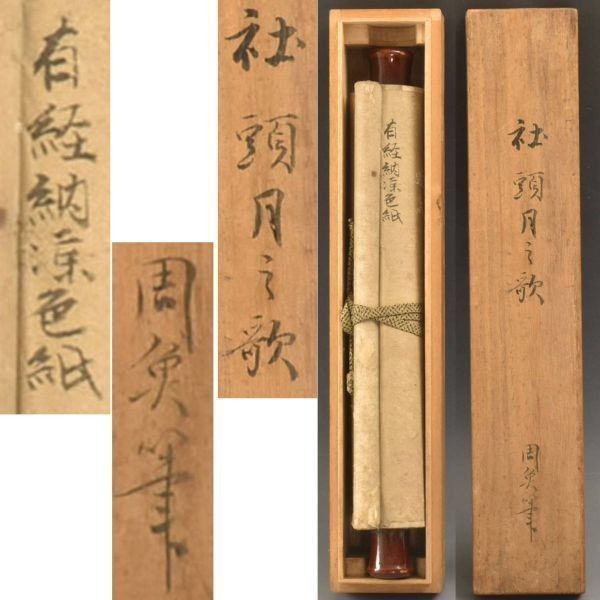 有経納涼色紙
周魚筆
社頭月之歌
有経納涼色紙
社頭月之歌
周魚筆